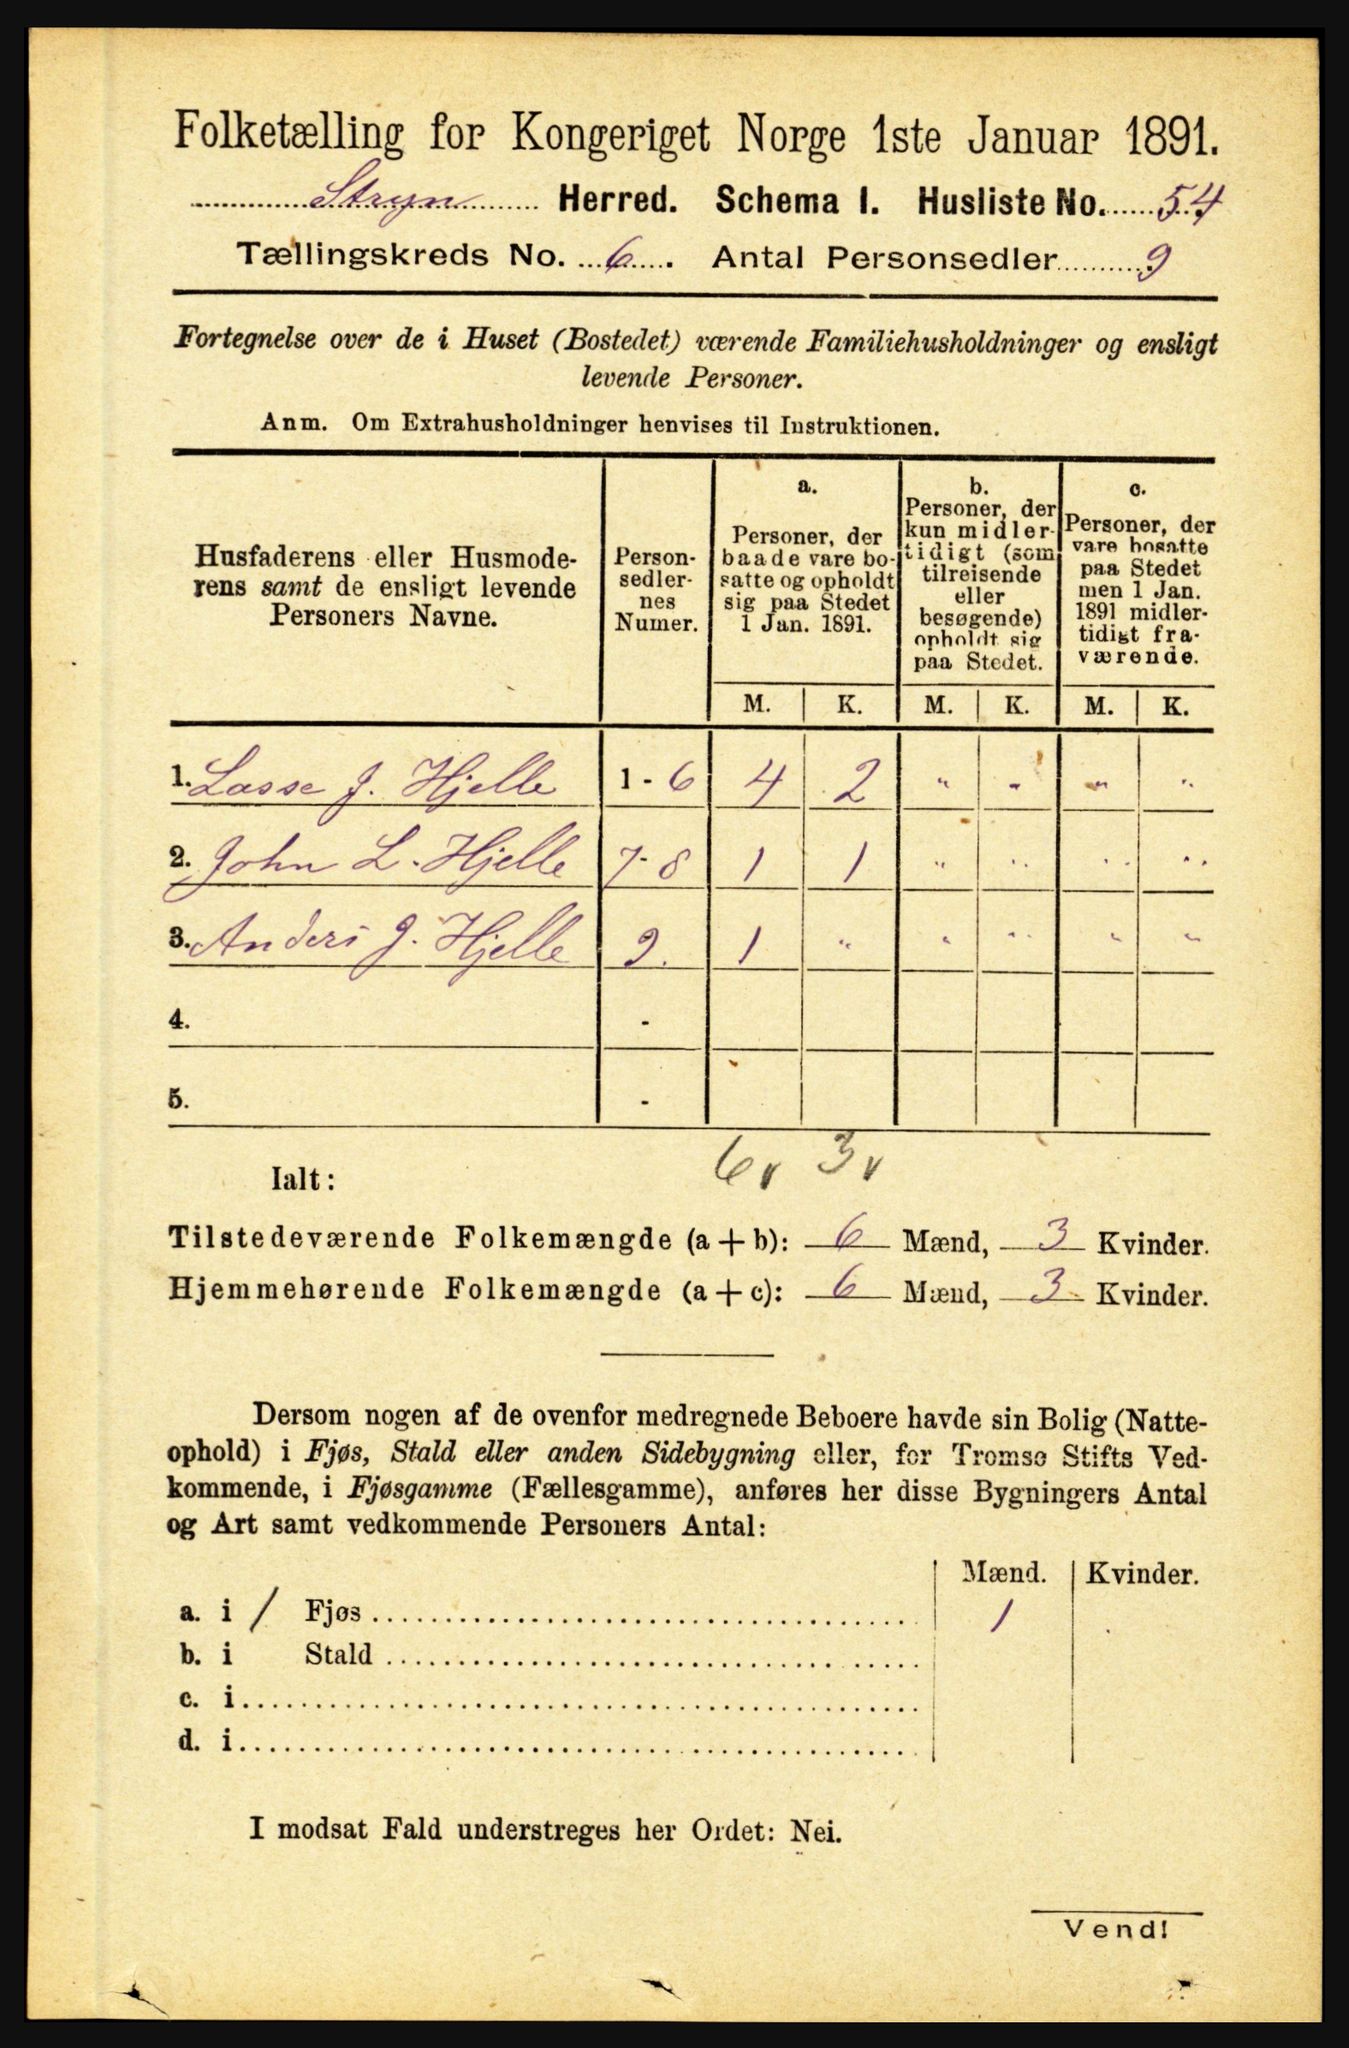 Folketælling for Kongeriget Norge 1ste Januar 1891.
Stryn Herred. Schema I. Husliste No. 54
Tællingskreds No. 6. Antal Personsedler 9
Fortegnelse over de i Huset (Bostedet) værende Familiehusholdninger og ensligt
levende Personer.
Anm. Om Extrahusholdninger henvises til Instruktionen.
Husfaderens eller Husmode-
rens samt de ensligt levende
Personers Navne.
Person-
sedler-
nes
Numer.
a.
Personer, der
baade vare bo-
satte og opholdt
sig paa Stedet
1 Jan. 1891.
b.
Personer, der
kun midler-
tidigt (som
tilreisende
eller
besøgende)
opholdt sig
paa Stedet.
c.
Personer, der
vare bosatte
paa Stedet
men 1 Jan.
1891 midler-
tidigt fra-
værende.
M. K. M. K. M. K.
1. Lasse J. Hjelle 1 - 6 4 2 " - " "
2. John L. Hjelle 7 - 8 1 1 " " " "
3. Anders J. Hjelle 9. 1 " " " " "
4. -
5. -
6 v 3 v
Ialt:
Tilstedeværende Folkemængde (a + b): 6 Mænd, 3 Kvinder.
Hjemmehørende Folkemængde (a + c): 6 Mænd, 3 Kvinder.
Dersom nogen af de ovenfor medregnede Beboere havde sin Bolig (Natte-
ophold) i Fjøs, Stald eller anden Sidebygning eller, for Tromsø Stifts Ved-
kommende, i Fjøsgamme (Fællesgamme), anføres her disse Bygningers Antal
og Art samt vedkommende Personers Antal:
Mænd. Kvinder.
a. i / Fjøs 1
b. i Stald
c. i
d. i
I modsat Fald understreges her Ordet: Nei.
Vend!